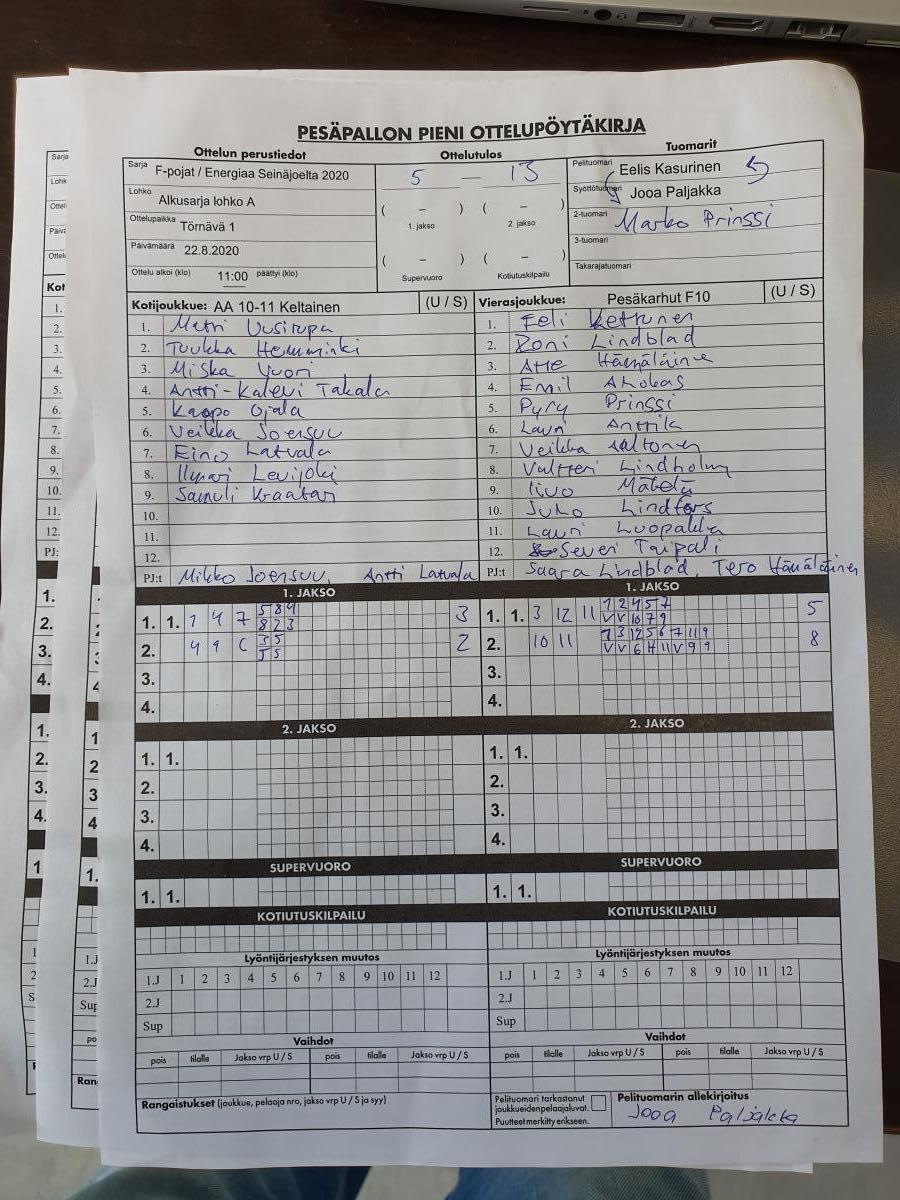 PESÄPALLON PIENI OTTELUPÖYTÄKIRJA
Ottelun perustiedot
Sarja F-pojat / Energiaa Seinäjoelta 2020
Lohko Alkusarja lohko A
Ottelupaikka Törnävä 1
Päivämäärä 22.8.2020
Ottelu alkoi (klo) 11:00 päättyi (klo)
Ottelutulos
5 — 13
( – ) ( – )
1. jakso 2. jakso
( – ) ( – )
Supervuoro Kotiutuskilpailu
Tuomarit
Pelituomari Eelis Kasurinen
Syöttötuomari Jooa Paljakka
2-tuomari Marko Prinssi
3-tuomari
Takarajatuomari
Kotijoukkue: AA 10-11 Keltainen (U / S)
1. Matri Uusirupa
2. Tuukka Hemminki
3. Miska Vuori
4. Antti-Kalevi Takala
5. Kaapo Ojala
6. Veikka Joensuu
7. Eino Latvala
8. Ilmari Levijoki
9. Samuli Kraatari
10.
11.
12.
PJ:t Mikko Joensuu, Antti Latvala
Vierasjoukkue: Pesäkarhut F10 (U / S)
1. Eeli Kettunen
2. Roni Lindblad
3. Atte Hämäläine
4. Emil Ahokas
5. Pyry Prinssi
6. Lauri Anttila
7. Veikka Aaltonen
8. Valtteri Lindholm
9. Iivo Mäkelä
10. Juho Lindfors
11. Lauri Luopakka
12. Severi Taipali
PJ:t Saara Lindblad, Tero Hämäläinen
1. JAKSO
1. 1. 1 4 7 5 8 4 3
8 2 3
2. 4 9 C 3 5 2
J 5
3.
4.
2. JAKSO
1. 1.
2.
3.
4.
SUPERVUORO
1. 1.
KOTIUTUSKILPAILU
Lyöntijärjestyksen muutos
1.J 1 2 3 4 5 6 7 8 9 10 11 12
2.J
Sup
Vaihdot
pois tilalle Jakso vrp U / S pois tilalle Jakso vrp U / S
Rangaistukset (joukkue, pelaaja nro, jakso vrp U / S ja syy)
1. JAKSO
1. 1. 3 12 11 1 2 4 5 7 5
V V 10 7 9
2. 10 11 1 3 12 5 6 7 11 9 8
V V 6 H 11 V 9 9
3.
4.
2. JAKSO
1. 1.
2.
3.
4.
SUPERVUORO
1. 1.
KOTIUTUSKILPAILU
Lyöntijärjestyksen muutos
1.J 1 2 3 4 5 6 7 8 9 10 11 12
2.J
Sup
Vaihdot
pois tilalle Jakso vrp U / S pois tilalle Jakso vrp U / S
Pelituomari tarkastanut
joukkueidenpelaajaluvat.
Puutteet merkitty erikseen.
Pelituomarin allekirjoitus
Jooa Paljakka